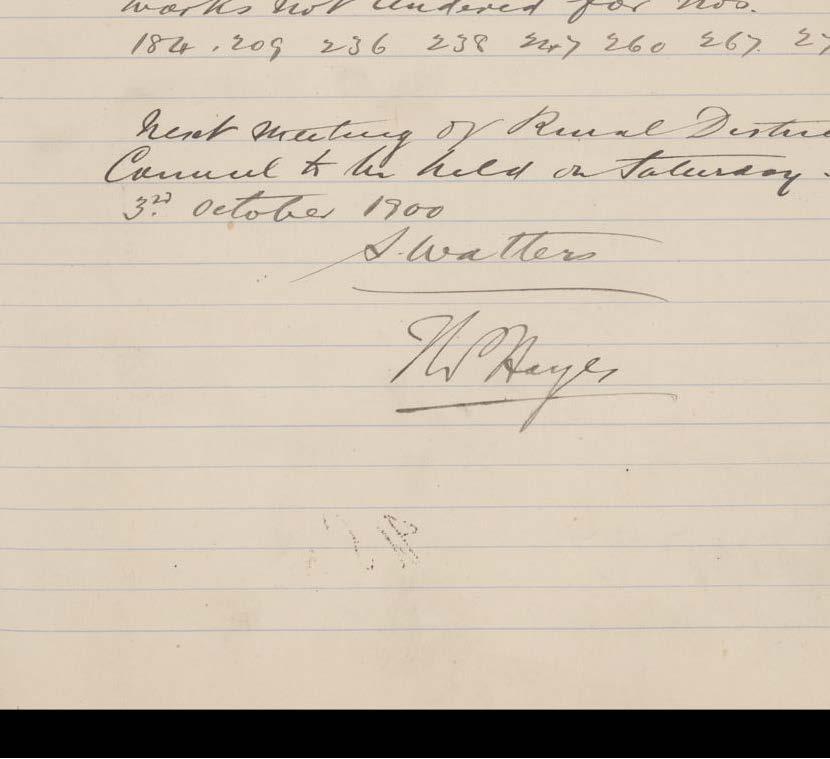 works not tendered for Nos.
184. 209 236 238 247 260 267. 27
Next meeting of Rural Distric
Council to be held on Saturday
3rd October 1900
S. Watters
Hayes